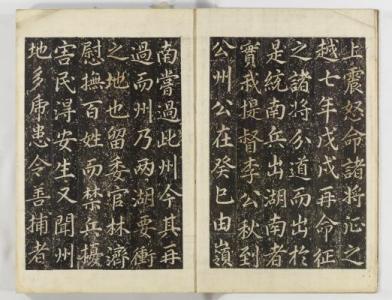 上震怒命諸將征之
越七年戊戌再命征
之諸將分道而出於
是統南兵出湖南者
實我提督李公秋到
公州公在癸巳由嶺
南嘗過此州今其再
過而州乃两湖要衝
之地也留委官林濟
慰撫百姓而禁兵擾
害民淂安生又聞州
地多虎患令善捕者